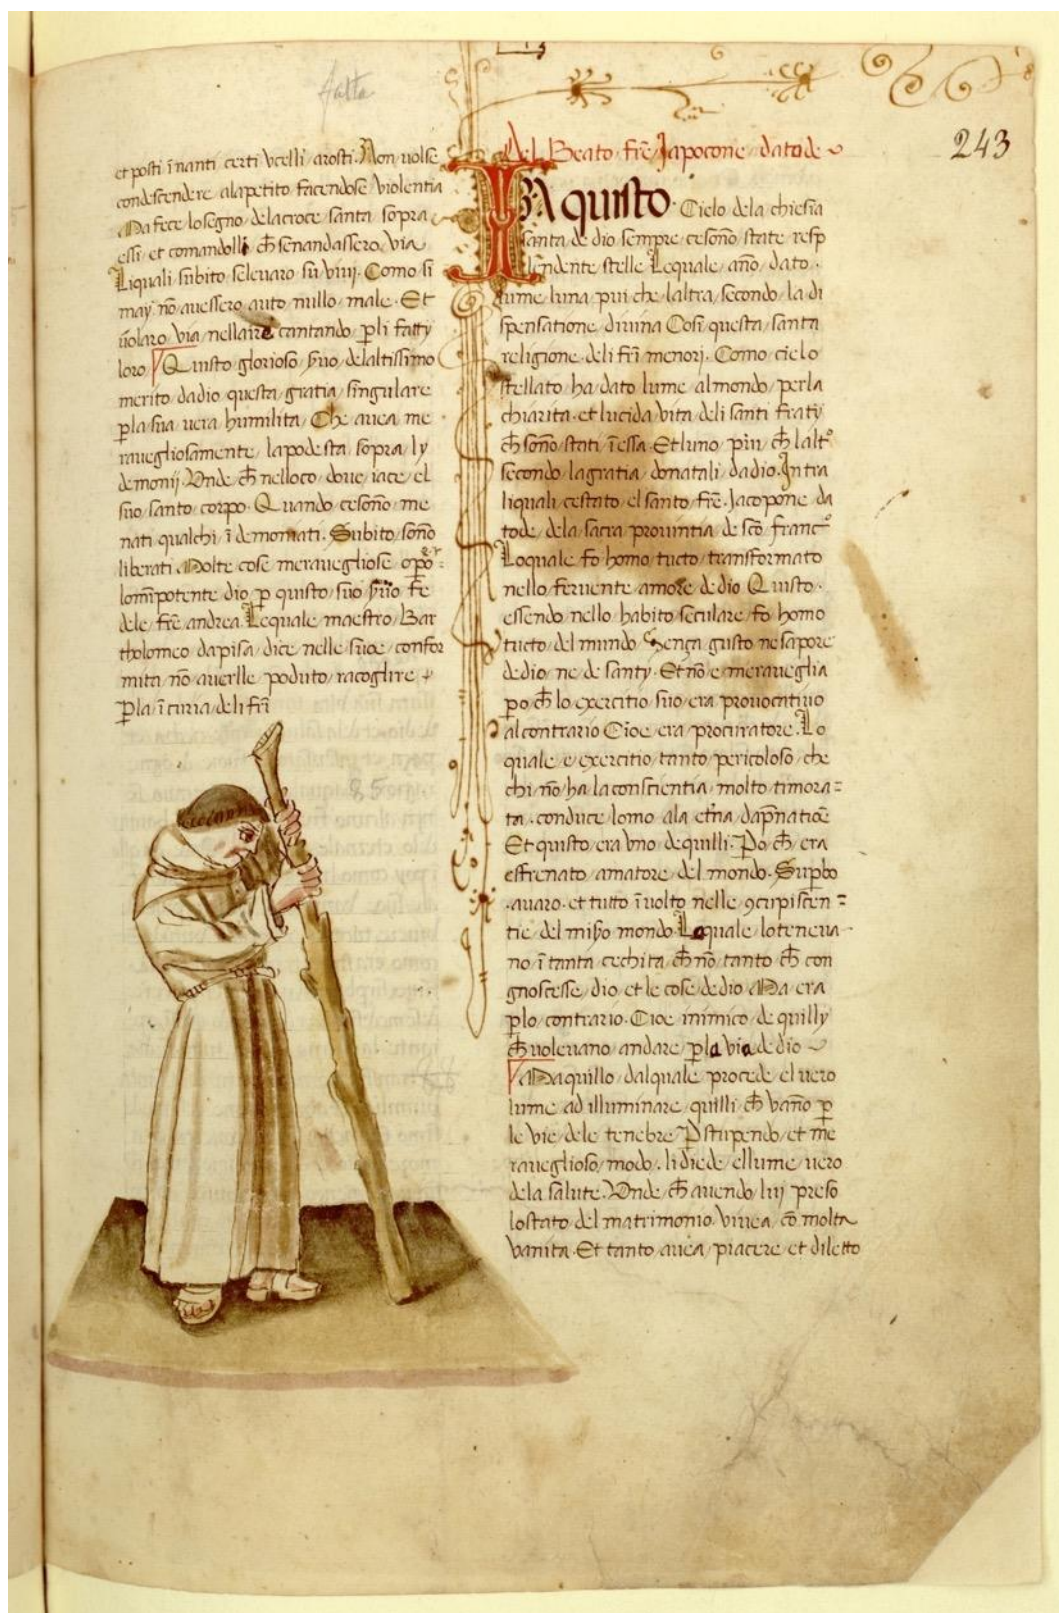 falta
243
et posti īnanti certi vcelli arosti. Non uolse
condescendere alapetito facendose violentia
Ma fece losegno delacroce santa sopra
essi et comandolli ch̄ senandassero via
Liquali subito seleuaro su viui. Como si
may nō auessero auto nullo male. Et
uolaro via nellaire cantando p̄li fatty
loro Quisto glorioso s̄uo delaltissimo
merito dadio questa gratia singulare
p̄la sua uera humilita. Che auea me
rauegliosamente lapodesta sopra ly
demonij. Vnde ch̄ nelloco doue iace el
suo santo corpo. Quando cesōno me
nati qualchi ī demoniati. Subito sōno
liberati. Molte cose merauegliose op̄o
lomīpotente dio p̄ quisto suo s̄uo fe
dele fr̄e andrea. Lequale maestro Bar
tholomeo dapisa dice nelle suoe confor
mita nō auerlle poduto racoglire
p̄la īcuria deli fr̄i
Del Beato fr̄e Japocone datode
IN Aquisto. Cielo dela chiesia
santa de dio sempre cesōno state resp
lendente stelle Lequale āno dato.
lume luna piu che laltra secondo la di
spensatione diuina Cosi questa santa
religione deli fr̄i menori. Como cielo
stellato ha dato lume almondo perla
chiarita et lucida vita deli santi fraty
ch̄ sōno stati īessa. Et luno piu ch̄ laltº
secondo lagratia donatali dadio. Intra
liquali cestato el santo fr̄e. Jacopone da
tode dela sacra prouintia de sc̄o francº
Loquale fo homo tucto transformato
nello feruente amore dedio Quisto.
essendo nello habito seculare fo homo
tucto del mundo Sença gusto ne sapore
dedio ne de santy. Et nō e meraueglia
po ch̄ lo exercitio suo era prouocatiuo
alcontrario Cioe era procuratore. Lo
quale e exercitio tanto pericoloso che
chi nō ha la conscientia molto timora=
ta. conduce lomo ala et̄na dap̄natiōe
Et quisto era vno dequilli. Po ch̄ era
esfrenato amatore del mondo. Sup̄bo
.auaro. et tutto īuolto nelle 9cupiscen=
tie del mis̄o mondo Loquale loteneua
no ī tanta cechita ch̄ nō tanto ch̄ con
gnoscesse dio et le cose dedio Ma era
p̄lo contrario. Cioe inimico de quilly
ch̄ uoleuano andare p̄la via de dio
Ma quillo dalquale procede el uero
lume ad illuminare quilli ch̄ vāno p̄
le vie dele tenebre P̄ stupendo et me
raueglioso modo. li diede ellume uero
dela salute. Vnde ch̄ auendo lui preso
lostato del matrimonio viuea cō molta
vanita. Et tanto auea piacere et diletto